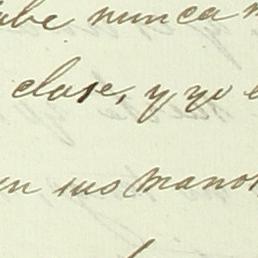 nunca
clase, y yo
sus manos